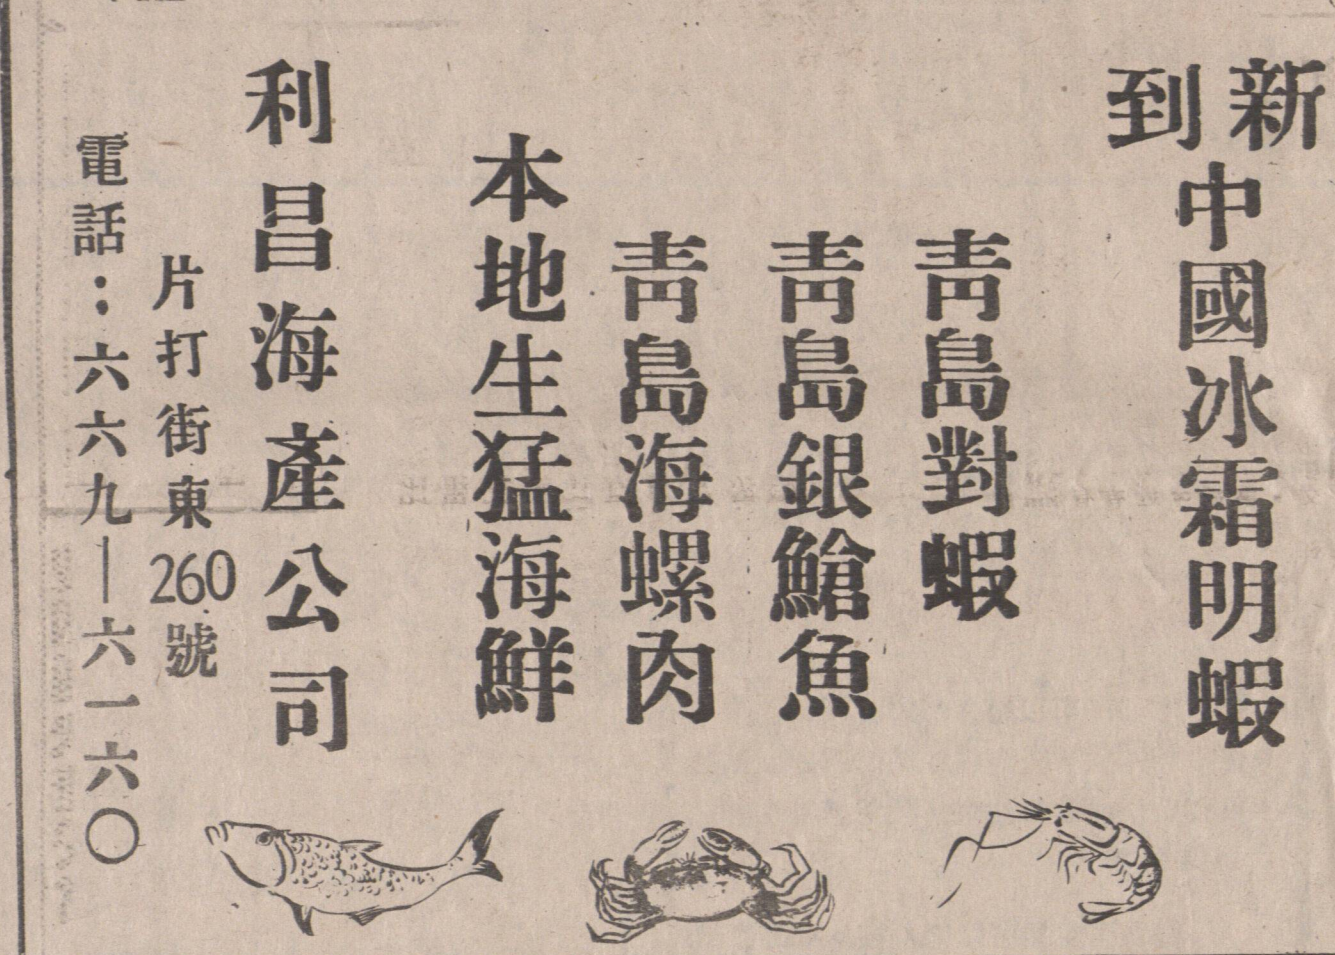 新到
中國冰霜明蝦
靑島對蝦
靑島銀鯧魚
靑島海螺肉
本地生猛海鮮
利昌海產公司
片打街東260號
電話：六六九—六一六〇